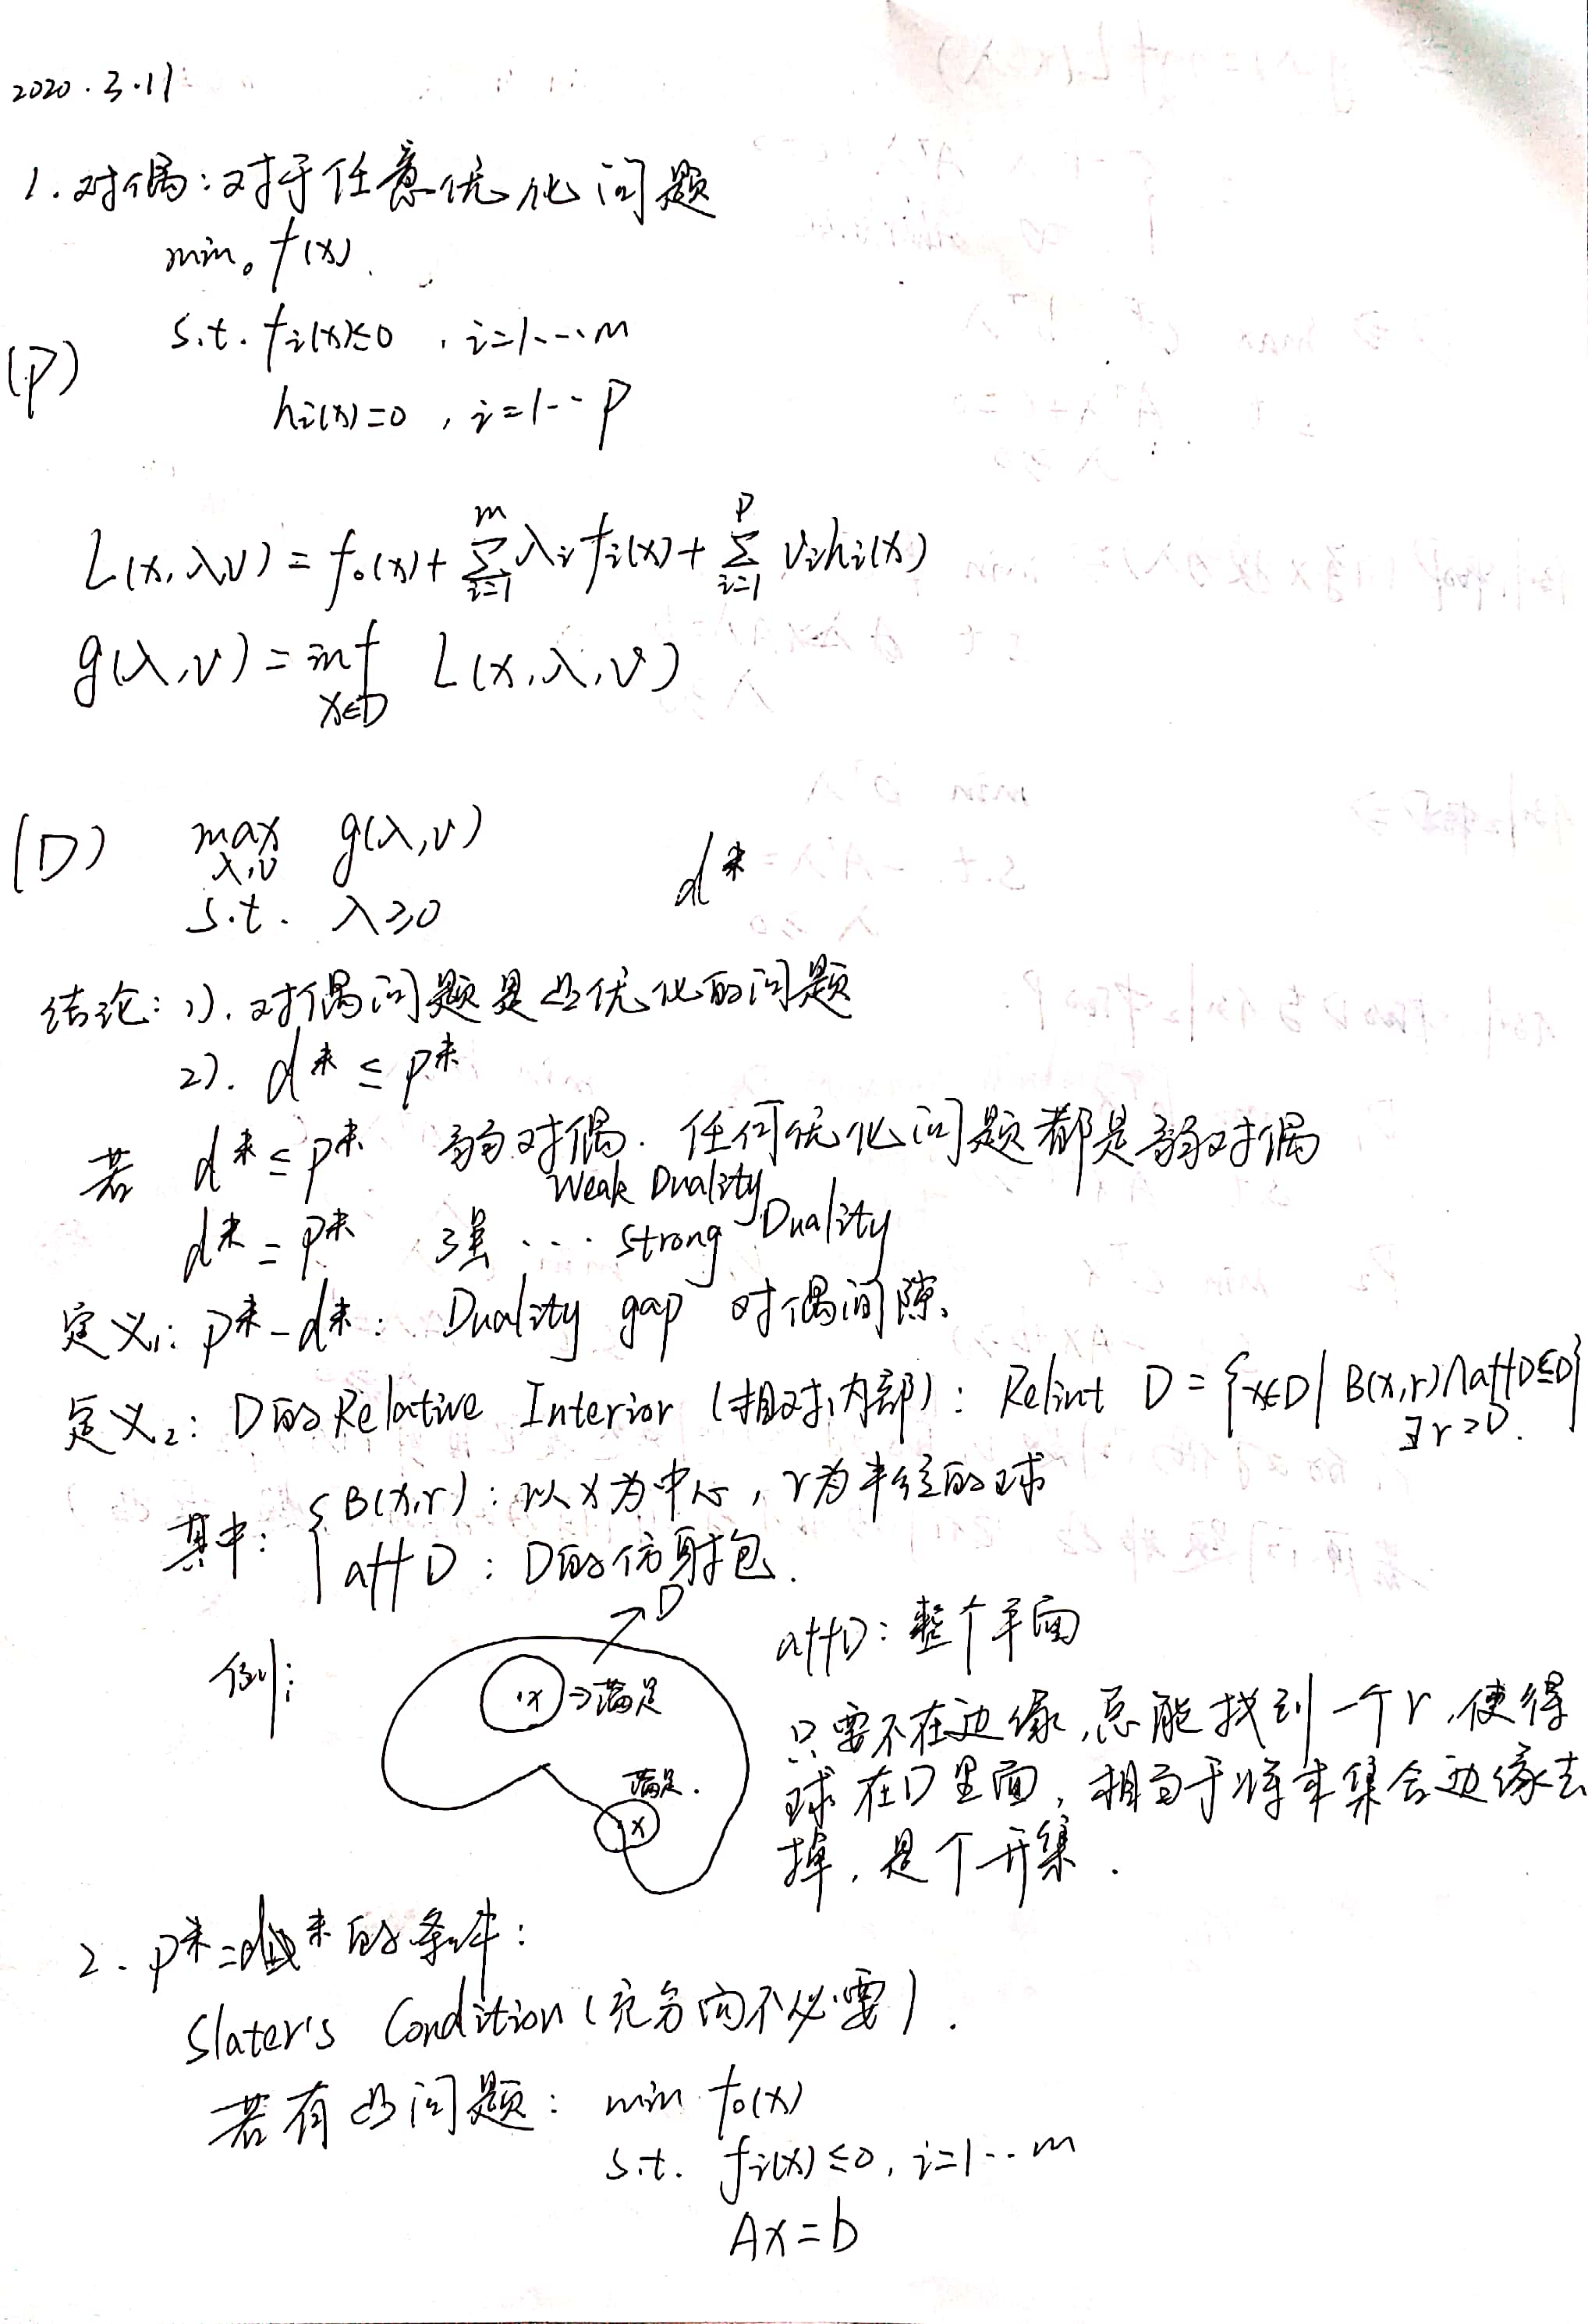 2020.3.11
1.对偶:对于任意优化问题
min。f(x).
(P)
s.t. fi(x)≤0 , i=1、…m
hi(x)=0 , i=1…p
L(x,λ,ν) = f₀(x) + ∑_{i=1}^{m} λi fi(x) + ∑_{i=1}^{p} νi hi(x)
g(λ,ν) = inf_{x∈D} L(x,λ,ν)
(D) max_{λ,ν} g(λ,ν) d*
s.t. λ≥0
结论: 1). 对偶问题是凸优化的问题
2). d* ≤ p*
若 d* ≤ p* 弱对偶. 任何优化问题都是弱对偶
Weak Duality
d* = p* 强 ··· Strong Duality
定义₁: p*-d*: Duality gap 对偶间隙.
定义₂: D的Relative Interior (相对内部): Relint D = {x∈D| B(x,r)∩aff D⊆D
∃r>0.}
其中: { B(x,r): 以x为中心, r为半径的球
aff D : D的仿射包.
D
例:
·x →满足
满足.
·x
aff D: 整个平面
只要不在边缘,总能找到一个r,使得
球在D里面, 相当于将本集合边缘去
掉, 是个开集.
2. p*=d*的条件:
Slater's Condition (充分而不必要).
若有凸问题: min f₀(x)
s.t. fi(x)≤0, i=1…m
Ax=b